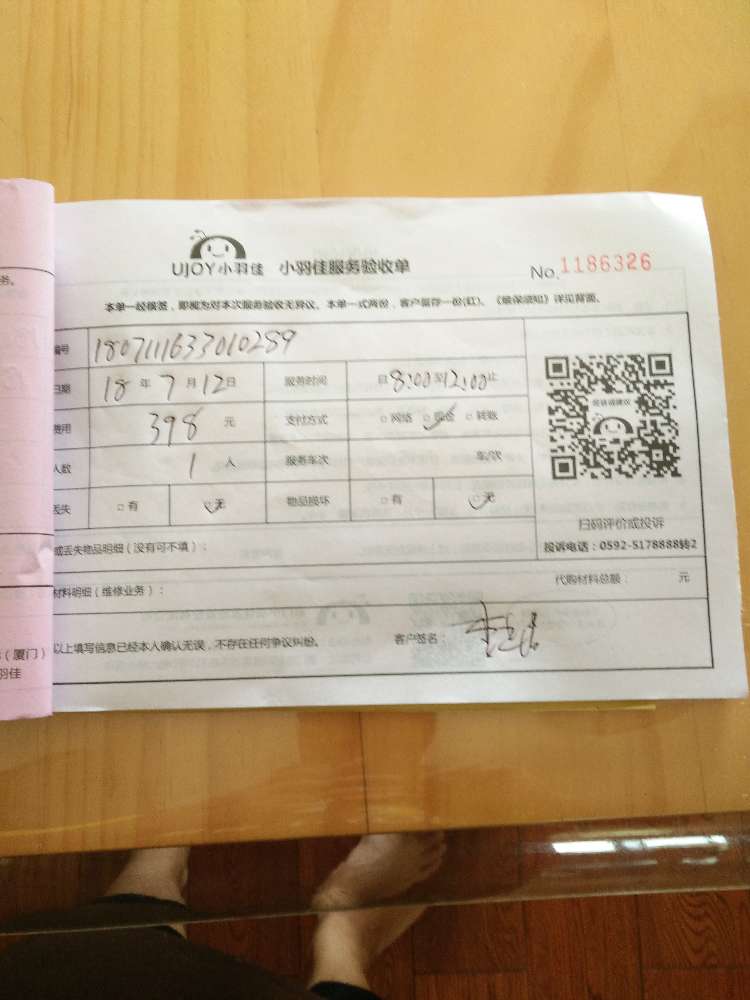 UJOY小羽佳 小羽佳服务验收单 No.1186326
本单一经核签，即视为对本次服务验收无异议。本单一式两份，客户留存一份(红)、《维保须知》详见背面。
编号 1807111633010289
日期 18 年 7 月 12 日 服务时间 自 8:00 至 12:00 止
费用 398 元 支付方式 □ 网络 ☑ 现金 □ 转账
人数 1 人 服务车次 车/次
丢失 □ 有 ☑ 无 物品损坏 □ 有 ☑ 无
扫码评价或投诉
投诉电话：0592-5178888转2
或丢失物品明细（没有可不填）：
材料明细（维修业务）： 代购材料总额： 元
以上填写信息已经本人确认无误，不存在任何争议纠纷。 客户签名：
务。
（厦门）
羽佳